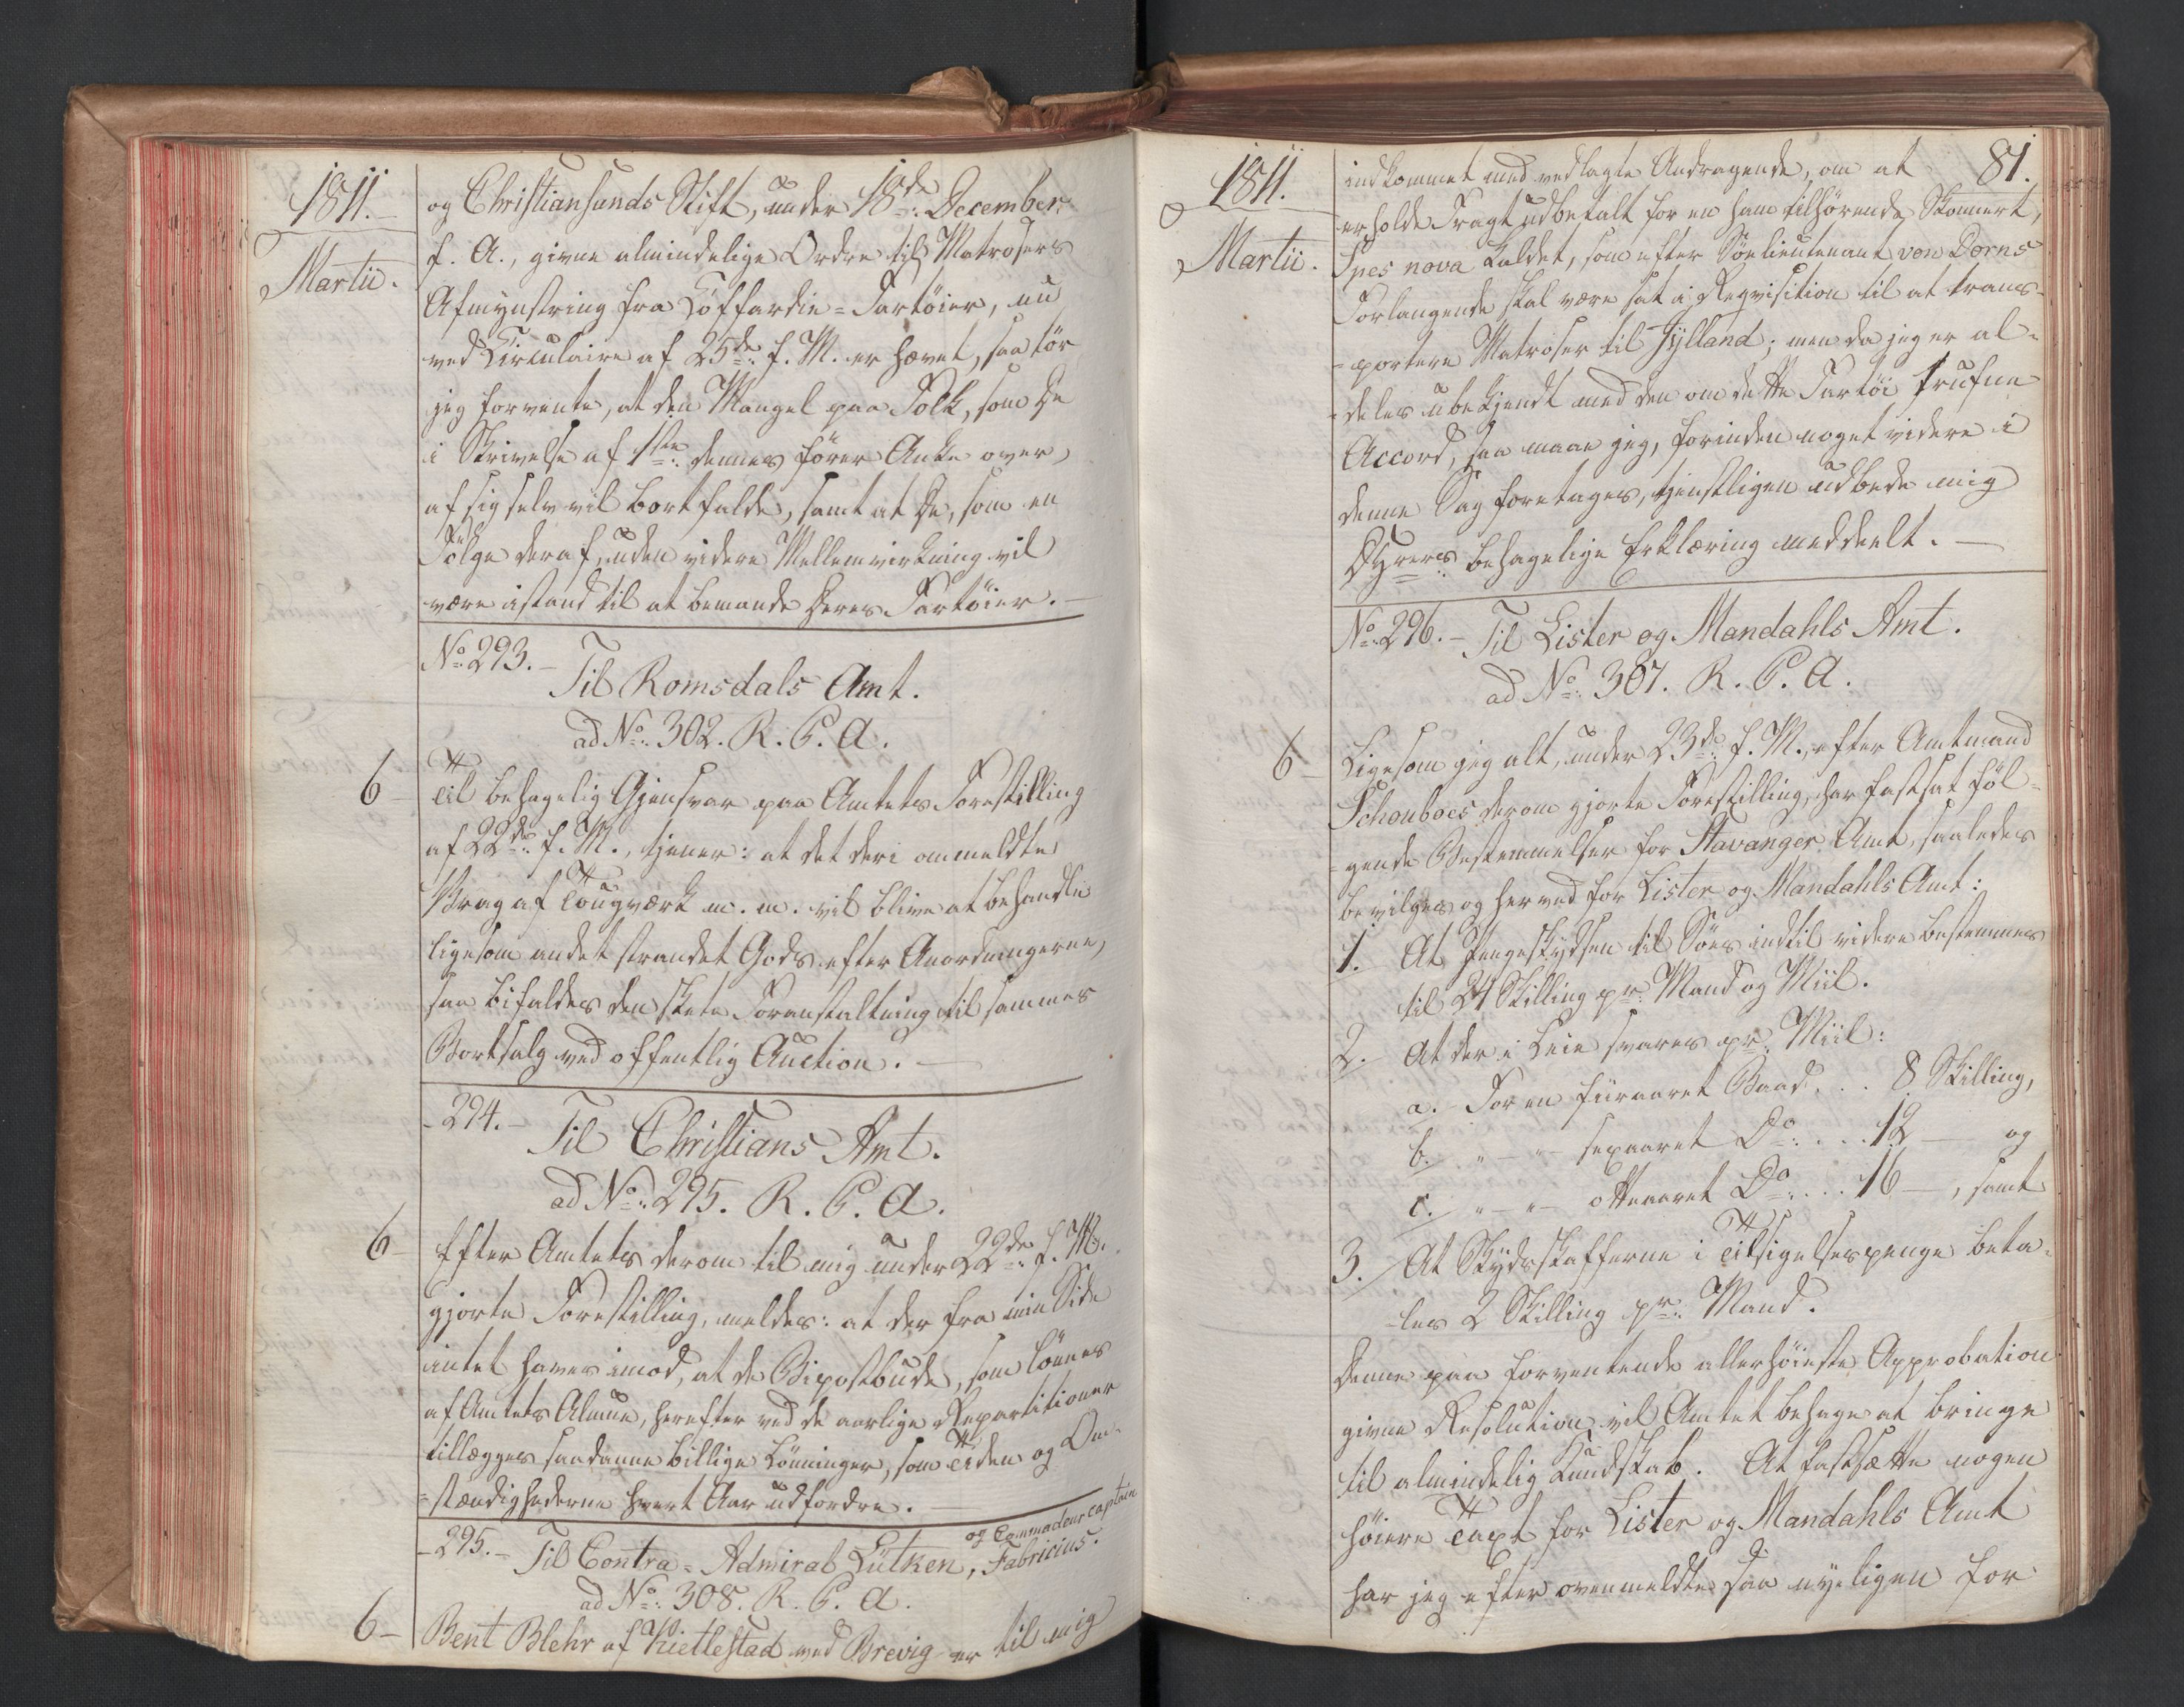 1811.
Martii.
og Christiansunds Stift, under 18de December
f. A., givne almindelige Ordre til Matrosers
Afmynstring fra Koffardie-Fartöier, nu
ved Circulaire af 25de f. M. er hævet, saa tör
jeg forvente, at den Mangel paa Folk, som De
i Skrivelse af 1ste dennes förer Anke over,
af sig selv vil bortfalde, samt at De, som en
Fölge deraf, uden videre Mellemvirkning vil
være istand til at bemande Deres Fartöier.
No 293.
Til Romsdals Amt.
ad No 302. R. P. A.
6
Til behagelig Gjensvar paa Amtets Forestilling
af 22de f. M., tjener: at det deri ommeldte
Vrag af Tougværk m. m. vil blive at behandle
ligesom andet strandet Gods efter Anordningerne,
saa bifaldes den skete Foranstaltning til sammes
Bortsalg ved offentlig Auction.
294.
Til Christians Amt.
ad No 295. R. P. A.
6
Efter Amtets derom til mig under 22de f. M.
gjorte Forestilling, meldes: at der fra min Side
intet haves imod, at de Bipostbude, som lönnes
af Amtets Almue, herefter ved de aarlige Repartitioner
tillægges saadanne billige Lönninger, som Tiden og Om-
=stændighederne hvert Aar udfordre.
295.
Til Contra-Admiral Lütken, og Commadeurcaptain Fabricius.
ad No 308. R. P. A.
6
Bent Blehr af Kietlestad ved Brevig er til mig
1811.
Martii.
81.
indkommet med vedlagte Andragende, om at
erholde Fragt udbetalt for en ham tilhörende Skonnert,
Spes nova kaldet, som efter Söelieutenant von Dorns
Forlangende skal være sat i Reqvisition til at trans-
=portere Matroser til Jylland; men da jeg er al-
=deles ubekjendt med den om dette Fartöi trufne
Accord, saa maae jeg, forinden noget videre i
denne Sag foretages, tjenstligen udbede mig
behagelige Erklæring meddeelt.
No 296. Til Lister og Mandahls Amt.
ad No 307. R. P. A.
6
Ligesom jeg alt, under 23de f. M., efter Amtmand
Schouboes derom gjorte Forestilling, har fastsat föl-
=gende Bestemmelser for Stavanger Amt, saaledes
bevilges og herved for Lister og Mandahls Amt:
1. At Pengeskydsen til Söes indtil videre bestemmes
til 24 Skilling pr. Mand og Miil.
2. At der i Leie svares pr. Miil:
a. For en fiiraaret Baad ... 8 Skilling,
b. " — " sexaaret Do .... 12 — og
c. " — " otteaaret Do .... 16 —, samt
3. At Skydsskafferne i Tilsigelsespenge beta-
=les 2 Skilling pr. Mand.
Denne paa forventende allerhöieste Approbation
givne Resolution vil Amtet behage at bringe
til almindelig Kundskab. At fastsætte nogen
höiere Taxt for Lister og Mandahls Amt
har jeg efter ovenmeldte saa nyeligen for